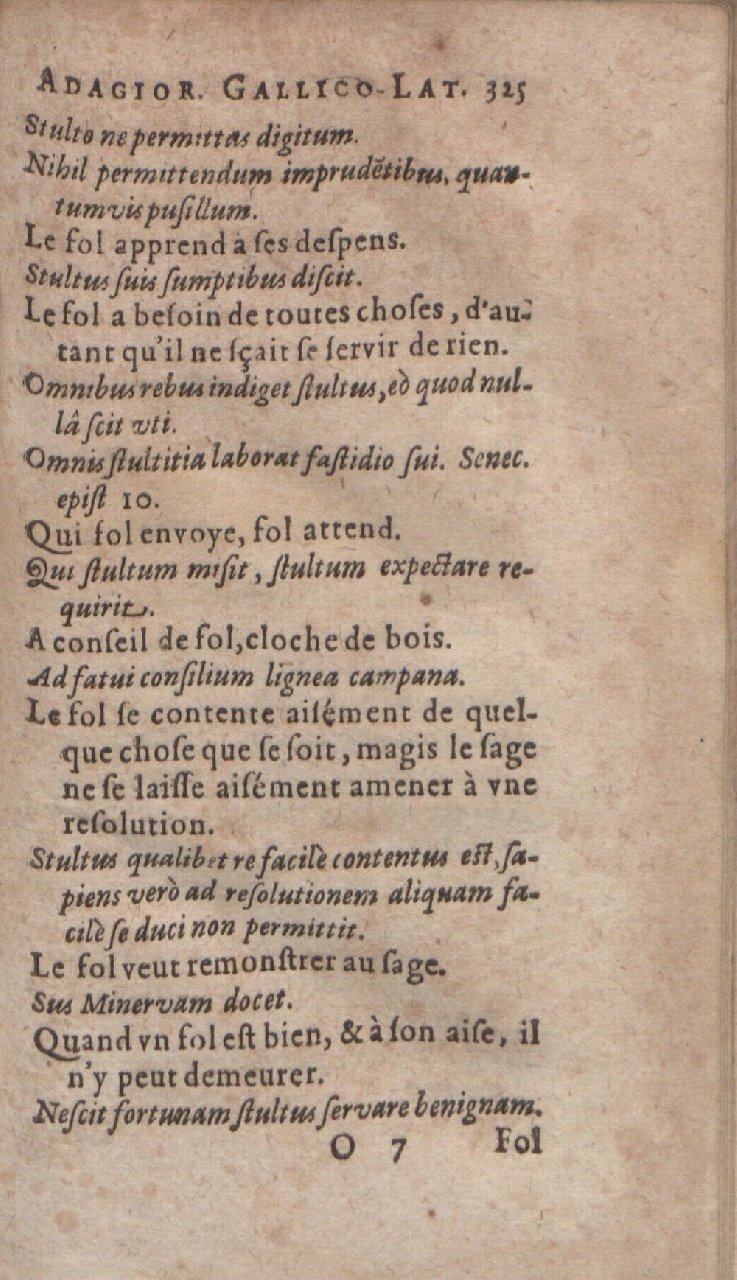 ADAGIOR. GALLICO-LAT. 325
Stulto ne permittas digitum.
Nihil permittendum imprudẽtibus, quan-
tumvis pusillum.
Le fol apprend à ses despens.
Stultus suis sumptibus discit.
Le fol a besoin de toutes choses, d'au-
tant qu'il ne sçait se servir de rien.
Omnibus rebus indiget stultus, eò quod nul-
lâ scit vti.
Omnis stultitia laborat fastidio sui. Senec.
epist 10.
Qui fol envoye, fol attend.
Qui stultum misit, stultum expectare re-
quirit.
A conseil de fol, cloche de bois.
Ad fatui consilium lignea campana.
Le fol se contente aisément de quel-
que chose que se soit, magis le sage
ne se laisse aisément amener à vne
resolution.
Stultus qualibet re facilè contentus est, sa-
piens verò ad resolutionem aliquam fa-
cilè se duci non permittit.
Le fol veut remonstrer au sage.
Sus Minervam docet.
Quand vn fol est bien, & à son aise, il
n'y peut demeurer.
Nescit fortunam stultus servare benignam.
O 7 Fol